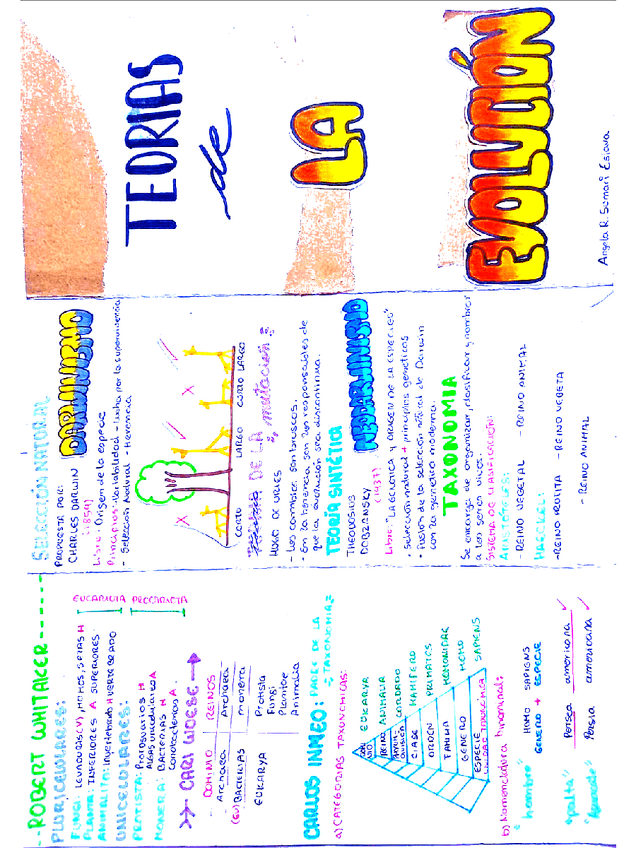 TEORIAS
de
LA
EVOLUCIÓN
SELECCIÓN NATURAL
DARWINISMO
PROPUESTA POR:
CHARLES DARWIN
Libro: Origen de la especie
Principios: Variabilidad - Lucha por la supervivencia
- Selección Natural - Herencia
CORTO LARGO CORTO LARGO
DE LA mutación
HUGO DE VRIES
- Los cambios son bruscos.
que la evolución sea discontinua.
TEORIA SINTÉTICA
NEODARWINISMO
THEODOSIUS
DOBZANSKY (1937)
Libro: "LA GENETICA Y ORIGEN DE LA ESPECIES"
• Selección natural + principios geneticos
• Fusión de la selección natural de Darwin
con la genetica moderna.
TAXONOMIA
Se encarga de organizar, clasificar y nombrar
a los seres vivos.
SISTEMA DE CLASIFICACIÓN:
ARISTOTELES:
- REINO VEGETAL - REINO ANIMAL
HAECKEL:
- REINO PROTISTA - REINO VEGETA
- REINO ANIMAL
--ROBERT WHITAKER------
EUCARIOTA PROCARIOTA
PLURICELULARES:
FUNGI: LEVADURAS(V), MOHOS, SETAS H
PLANTAE: INFERIORES A SUPERIORES
ANIMALIA: Invertebrado H VERTEBRADO
UNICELULARES:
PROTISTA: Protozoarios H
Algas unicelulares A
MONERA: BACTERIAS H
Cianobacterias A.
>> CARI WOESE
DOMINIO REINOS
Archaea Archaea
(EU)BACTERIAS monera
EUKARYA Protista
Fungi
Plantae
Animalia
CARLOS INNEO: PADRE DE LA
TAXONOMIA
a) CATEGORIAS TAXONOMICAS:
DOMINIO EUKARYA
REINO ANIMALIA
CORDADO
CLASE MAMIFERO
ORDEN PRIMATES
FAMILIA HOMONIDAE
GENERO HOMO
ESPECIE SAPIENS
b) Nomenclatura binominal:
"hombre" HOMO SAPIENS
GENERO + ESPECIE
"palta" Persea americana
"Aguacate" Persia americana